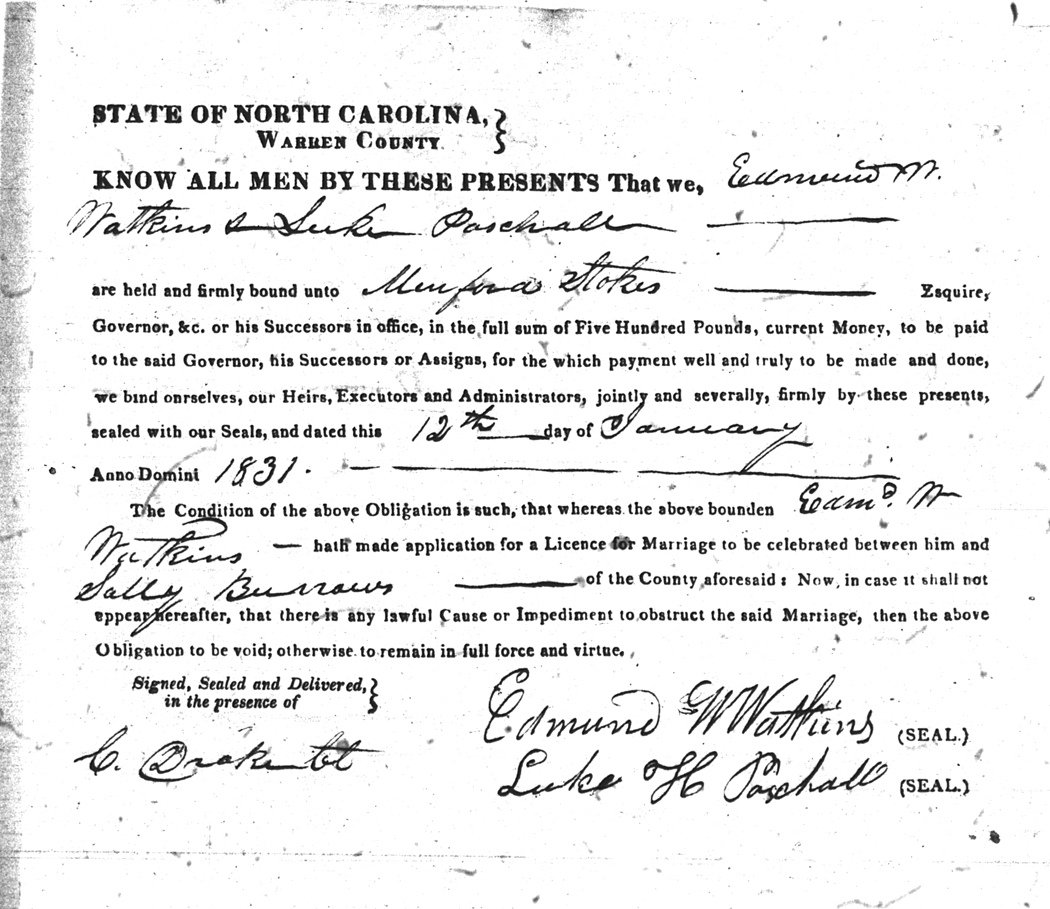 STATE OF NORTH CAROLINA,
WARREN COUNTY.
KNOW ALL MEN BY THESE PRESENTS That we, Edmund W.
Watkins & Luke Paschall
are held and firmly bound unto Munford Stokes Esquire,
Governor, &c. or his Successors in office, in the full sum of Five Hundred Pounds, current Money, to be paid
to the said Governor, his Successors or Assigns, for the which payment well and truly to be made and done,
we bind onrselves, our Heirs, Executors and Administrators, jointly and severally, firmly by these presents,
sealed with our Seals, and dated this 12th day of January
Anno Domini 1831.
The Condition of the above Obligation is such, that whereas the above bounden Edmd. W
Watkins — hath made application for a Licence for Marriage to be celebrated between him and
Sally Burrows of the County aforesaid: Now, in case it shall not
appear hereafter, that there is any lawful Cause or Impediment to obstruct the said Marriage, then the above
Obligation to be void; otherwise to remain in full force and virtue.
Signed, Sealed and Delivered,
in the presence of
Edmund W Watkins (SEAL.)
C. Drake
Luke H Paschall (SEAL.)